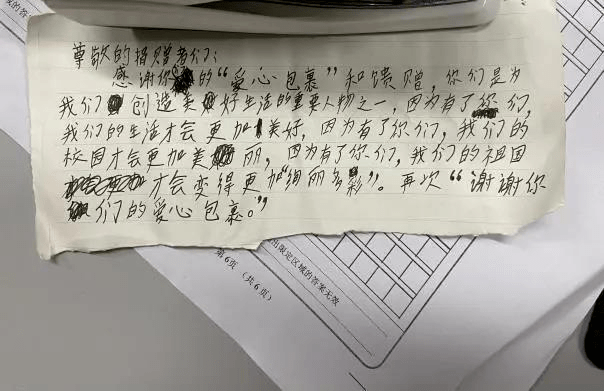 尊敬的捐赠者们：
感谢你的“爱心包裹”和馈赠，你们是为
我们创造美好生活的重要人物之一，因为有了你们，
我们的生活才会更加美好，因为有了你们，我们的
校园才会更加美丽，因为有了你们，我们的祖国
才会变得更加“绚丽多彩”。再次“谢谢你
们的爱心包裹。”
出限定区域的答案无效
第6页（共6页）